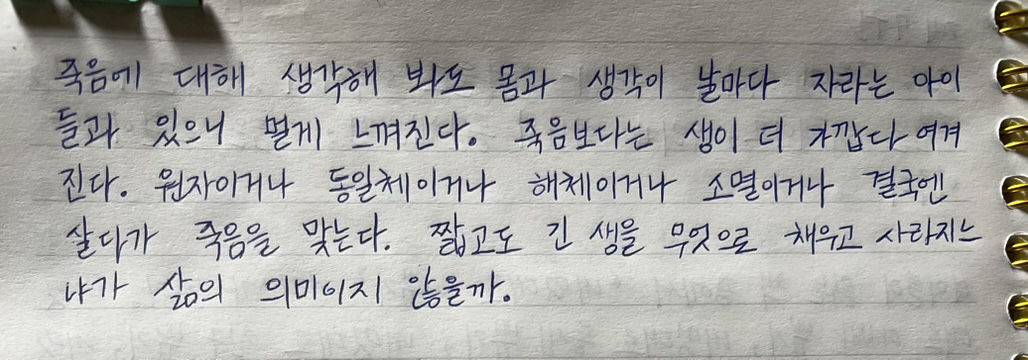 죽음에 대해 생각해 봐도 몸과 생각이 날마다 자라는 아이
들과 있으니 멀게 느껴진다. 죽음보다는 생이 더 가깝다 여겨
진다. 원자이거나 동일체이거나 해체이거나 소멸이거나 결국엔
살다가 죽음을 맞는다. 짧고도 긴 생을 무엇으로 채우고 사라지느
냐가 삶의 의미이지 않을까.